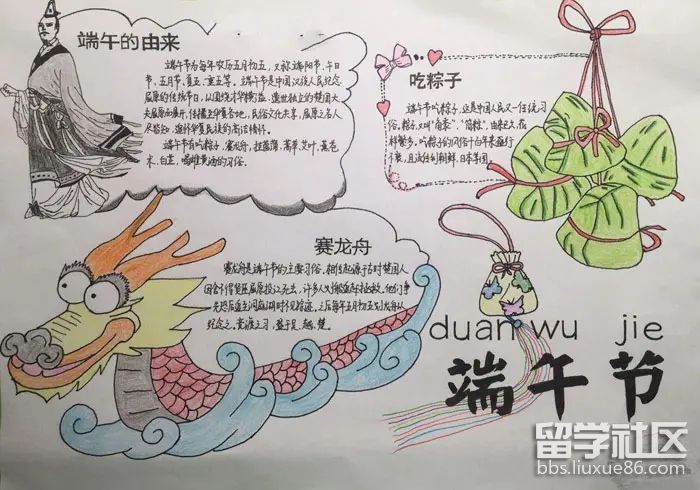 端午的由来
端午节为每年农历五月初五,又称端阳节、午日
节、五月节、夏五、重五等。端午节是中国汉族人民纪念
屈原的传统节日,以围绕才华横溢、遗世独立的楚国大
夫屈原而展开,传播至华夏各地,民俗文化共享,屈原之名人
尽皆知,追怀华夏民族的高洁情怀。
端午节有吃粽子,赛龙舟,挂菖蒲、蒿草、艾叶,薰苍
术、白芷,喝雄黄酒的习俗。
吃粽子
端午节吃粽子,这是中国人民又一传统习
俗。粽子,又叫"角黍"、"筒粽",由来已久,花
样繁多。吃粽子的风俗千百年来盛行
不衰,且流传到朝鲜、日本等国。
赛龙舟
赛龙舟是端午节的主要习俗,相传起源于古时楚国人
因舍不得贤臣屈原投江死去,许多人划船追赶拯救。他们争
先恐后追至洞庭湖时不见踪迹,之后每年五月初五划龙舟以
纪念之。竞渡之习,盛于吴、越、楚。
duan wu jie
端午节
留学社区
bbs.liuxue86.com